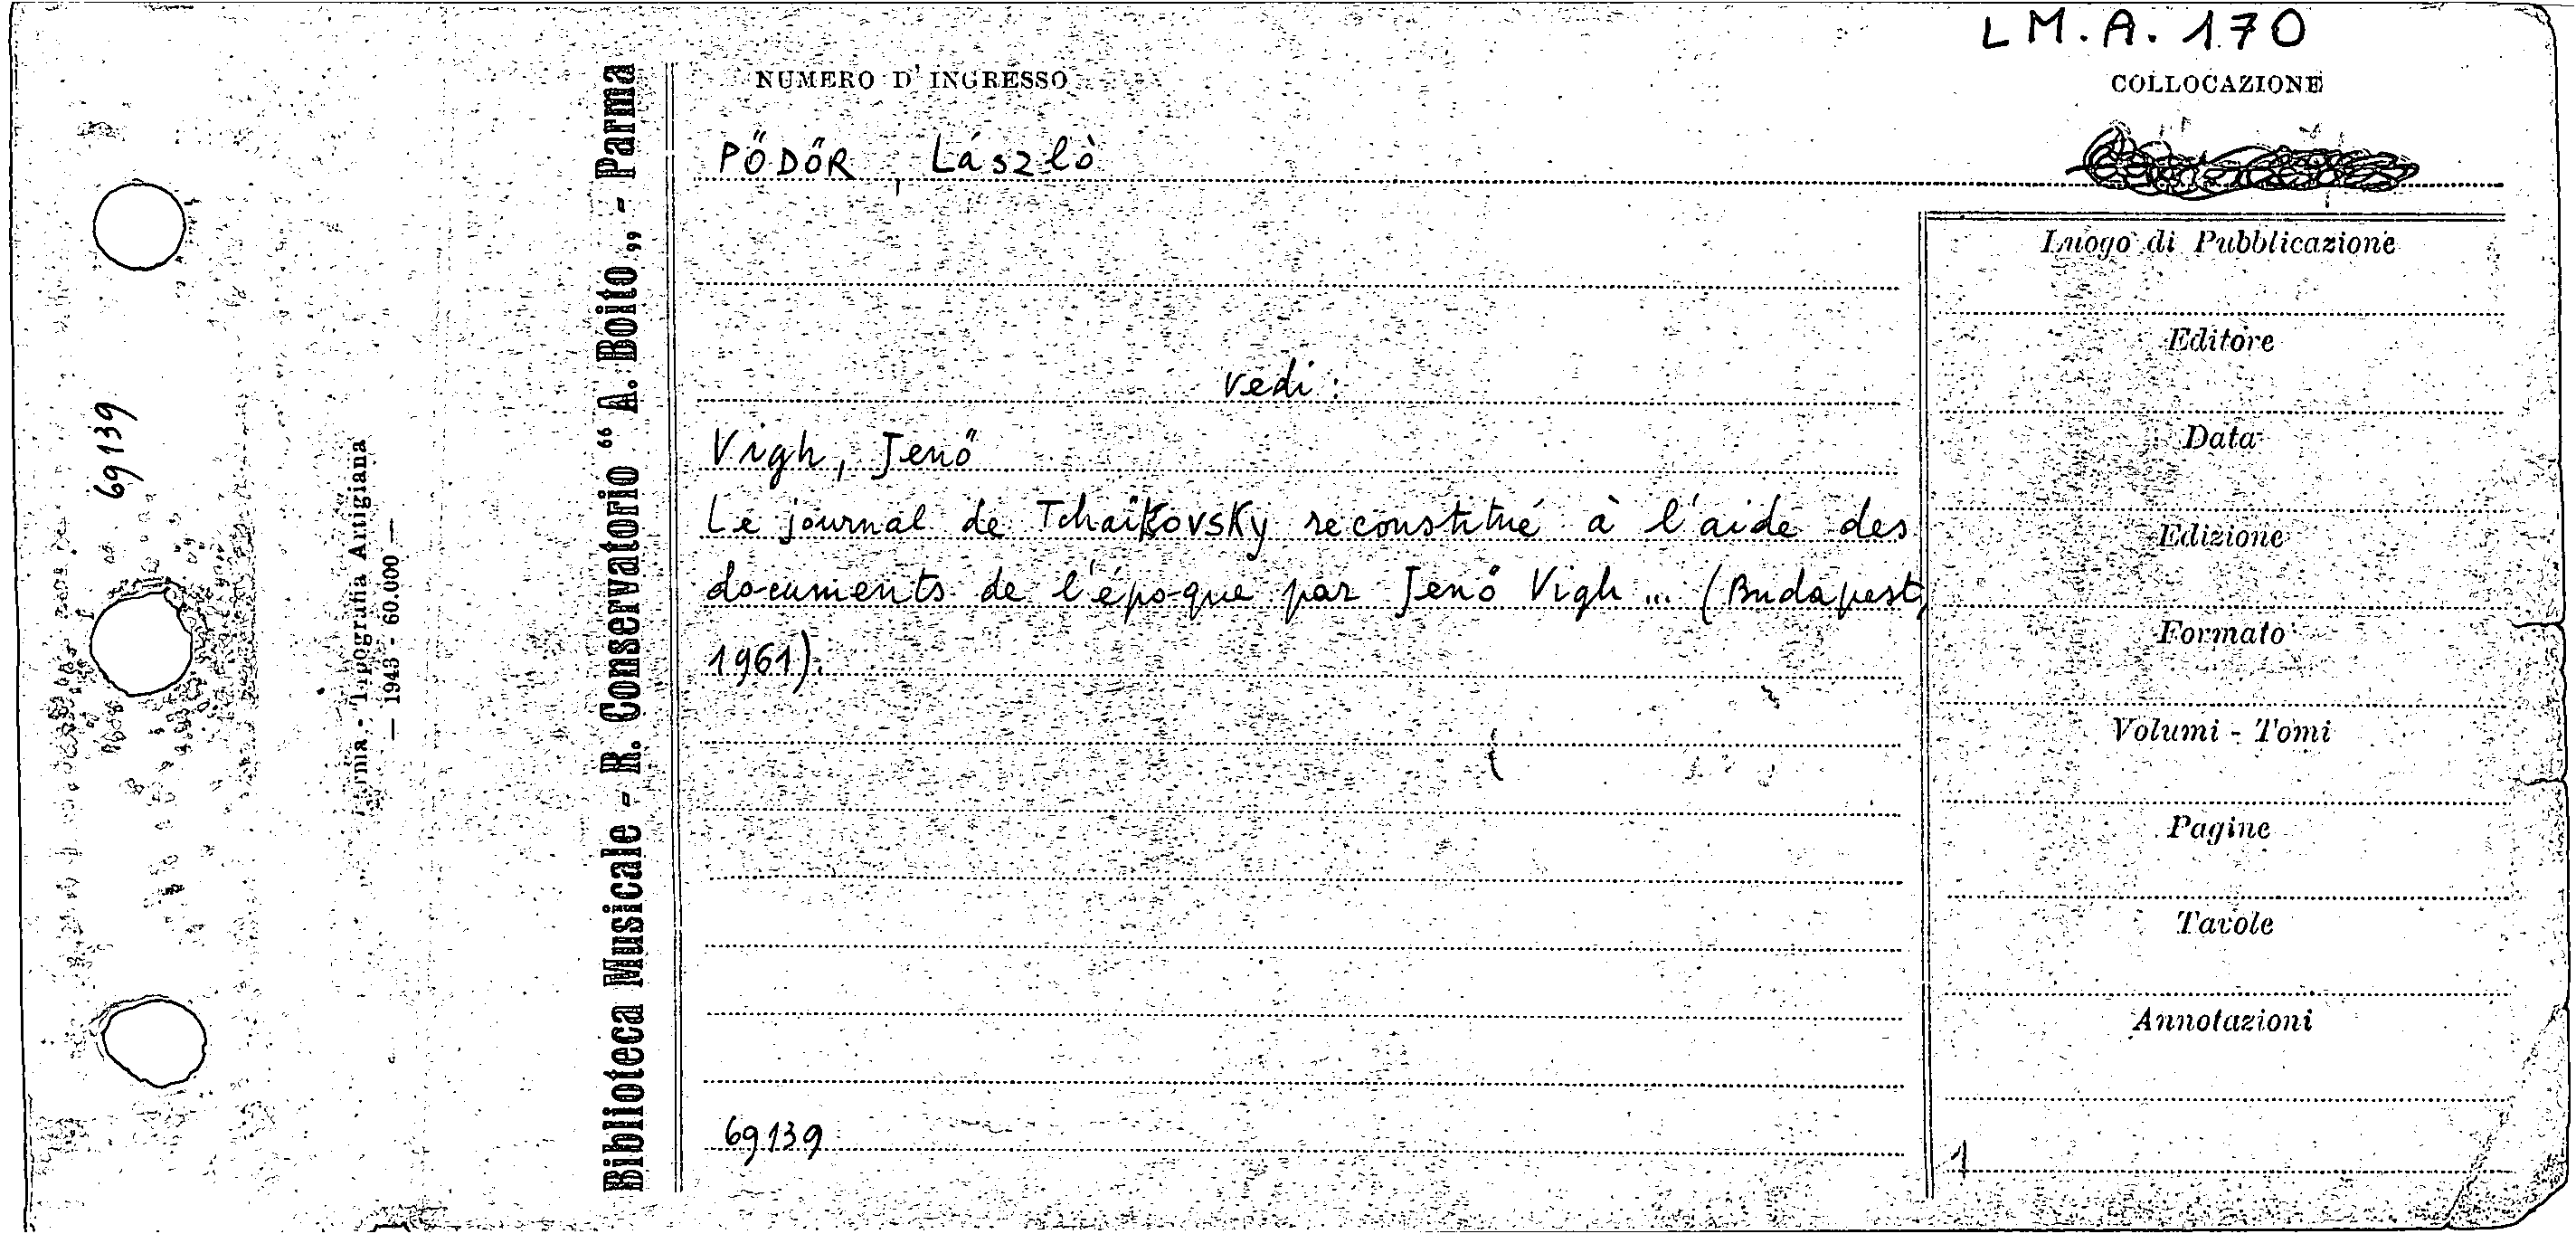 LM.A.170
NUMERO D' INGRESSO
COLLOCAZIONE
PŐDŐR, Lászlò
vedi:
Vigh, Jenő
Le journal de Tchaïkovsky reconstitué à l'aide des
documents de l'époque par Jenő Vigh ... (Budapest,
1961).
69139
Luogo di Pubblicazione
Editore
Data
Edizione
Formato
Volumi - Tomi
Pagine
Tavole
Annotazioni
1
Biblioteca Musicale - R. Conservatorio “ A. Boito „ - Parma
Parma - Tipografia Artigiana
— 1943 - 60.000 —
69139